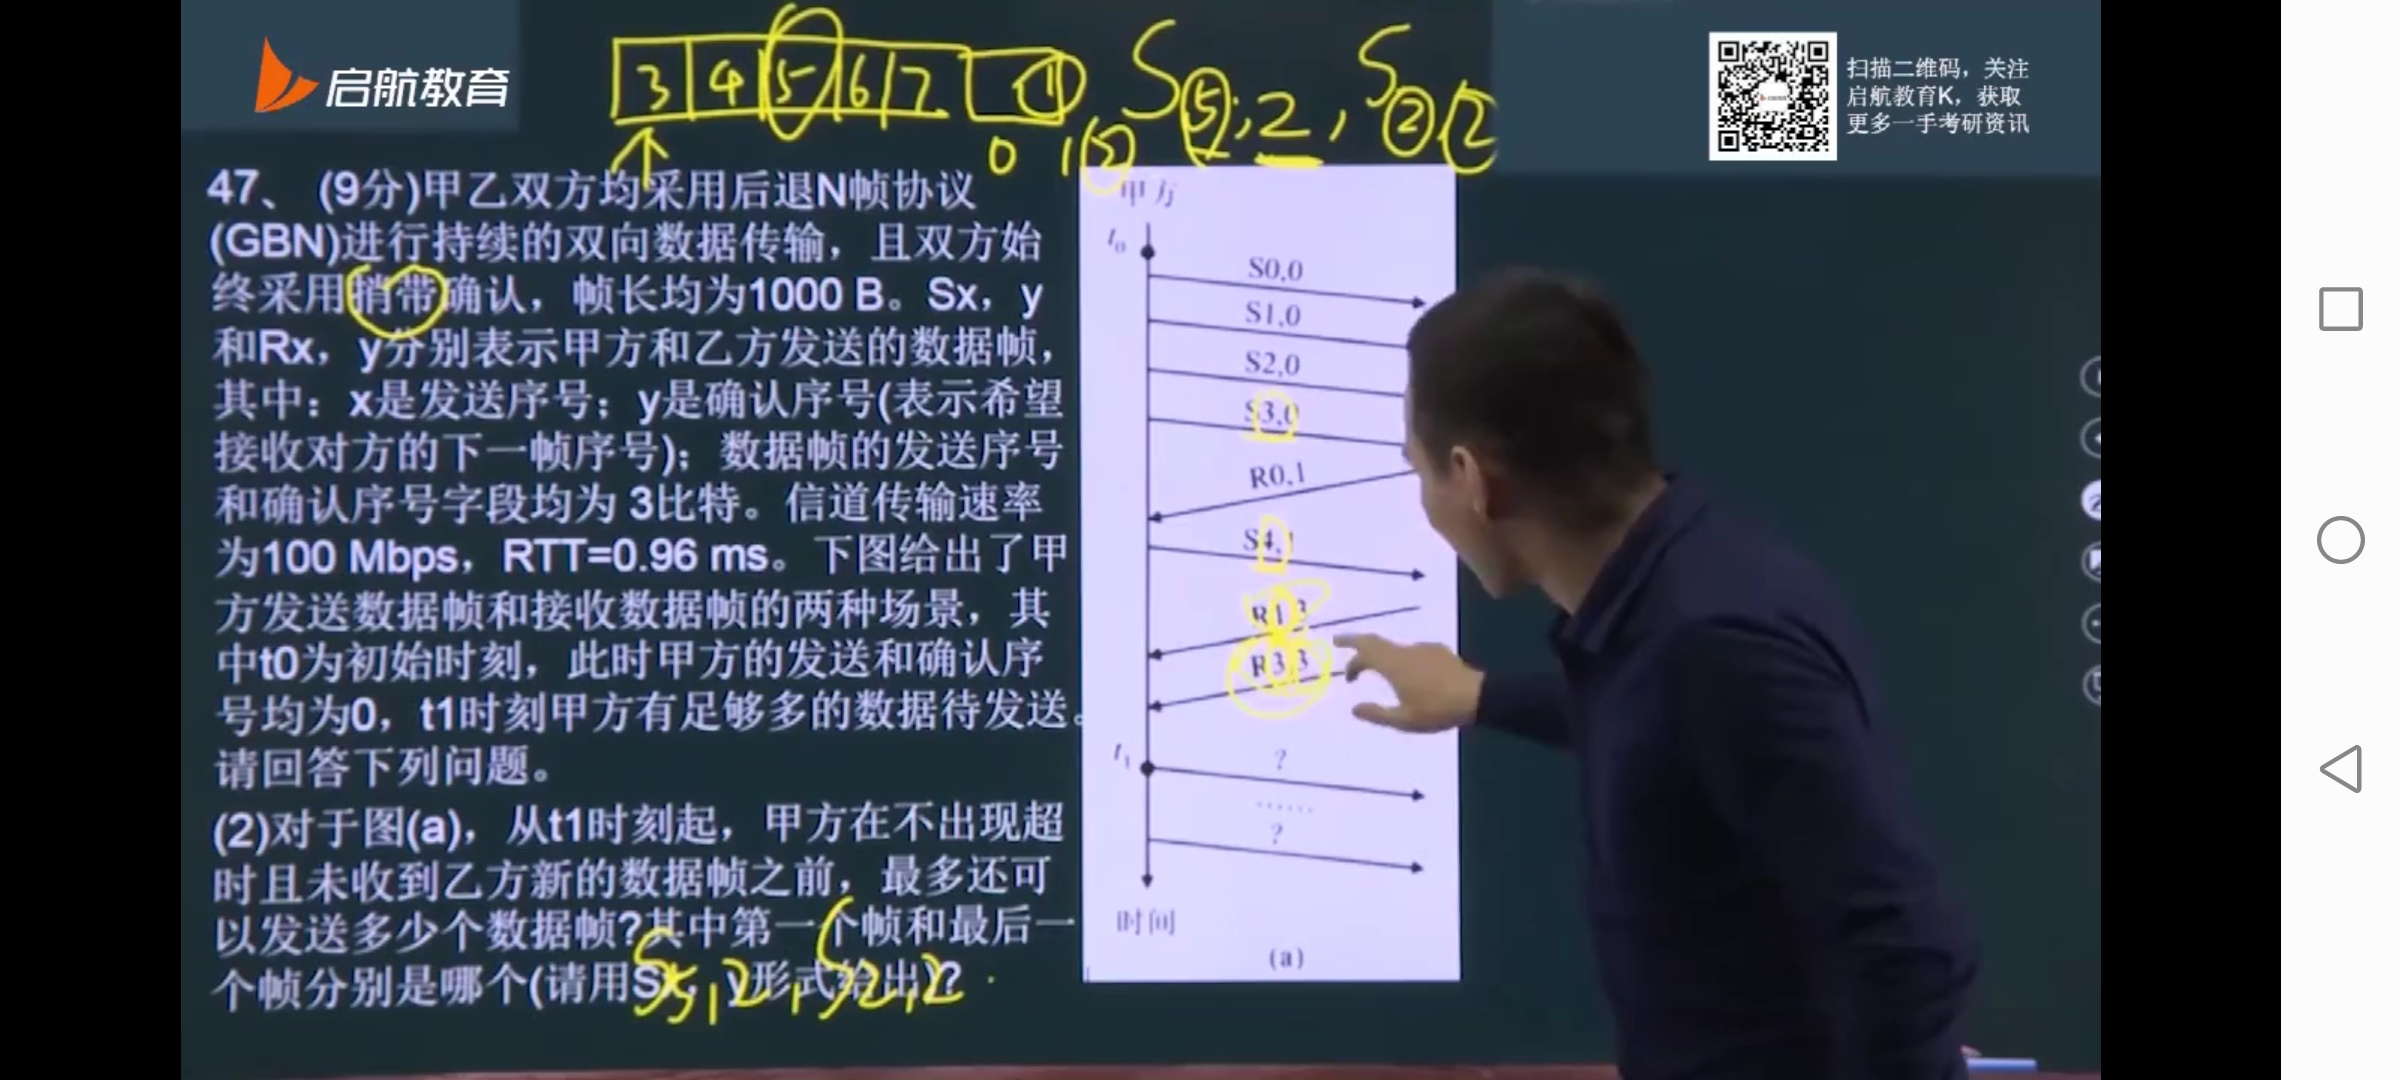 启航教育
3 4 5 6 7 1
0 1 2
S5,2, S2,2
扫描二维码，关注
启航教育K，获取
更多一手考研资讯
47、 (9分)甲乙双方均采用后退N帧协议
(GBN)进行持续的双向数据传输，且双方始
终采用捎带确认，帧长均为1000 B。Sx，y
和Rx，y分别表示甲方和乙方发送的数据帧，
其中：x是发送序号；y是确认序号(表示希望
接收对方的下一帧序号)；数据帧的发送序号
和确认序号字段均为 3比特。信道传输速率
为100 Mbps，RTT=0.96 ms。下图给出了甲
方发送数据帧和接收数据帧的两种场景，其
中t0为初始时刻，此时甲方的发送和确认序
号均为0，t1时刻甲方有足够多的数据待发送。
请回答下列问题。
(2)对于图(a)，从t1时刻起，甲方在不出现超
时且未收到乙方新的数据帧之前，最多还可
以发送多少个数据帧?其中第一个帧和最后一
个帧分别是哪个(请用Sx，y形式给出)?
S5,2, S2,2
甲方
t0
S0,0
S1,0
S2,0
S3,0
R0,1
S4,1
R1,3
R3,3
t1
?
……
?
时间
(a)